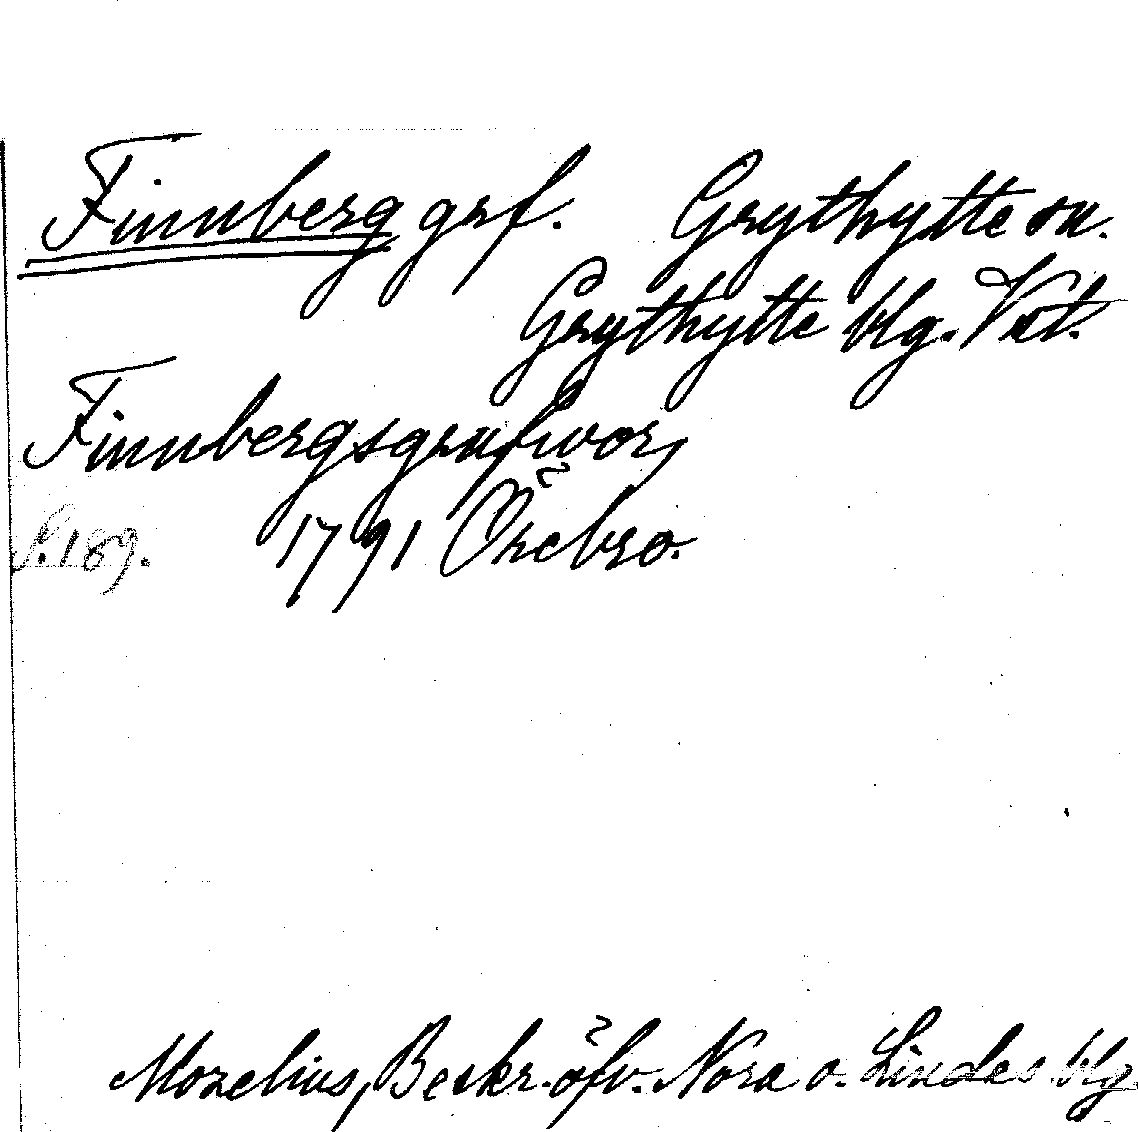 Finnberg grf. Grythytte sn.
Grythytte blg. Vstl.
Finnbergsgrufwor,
S. 189. 1791 Örebro.
Mozelius, Beskr. öfv. Nora o. Lindes blg